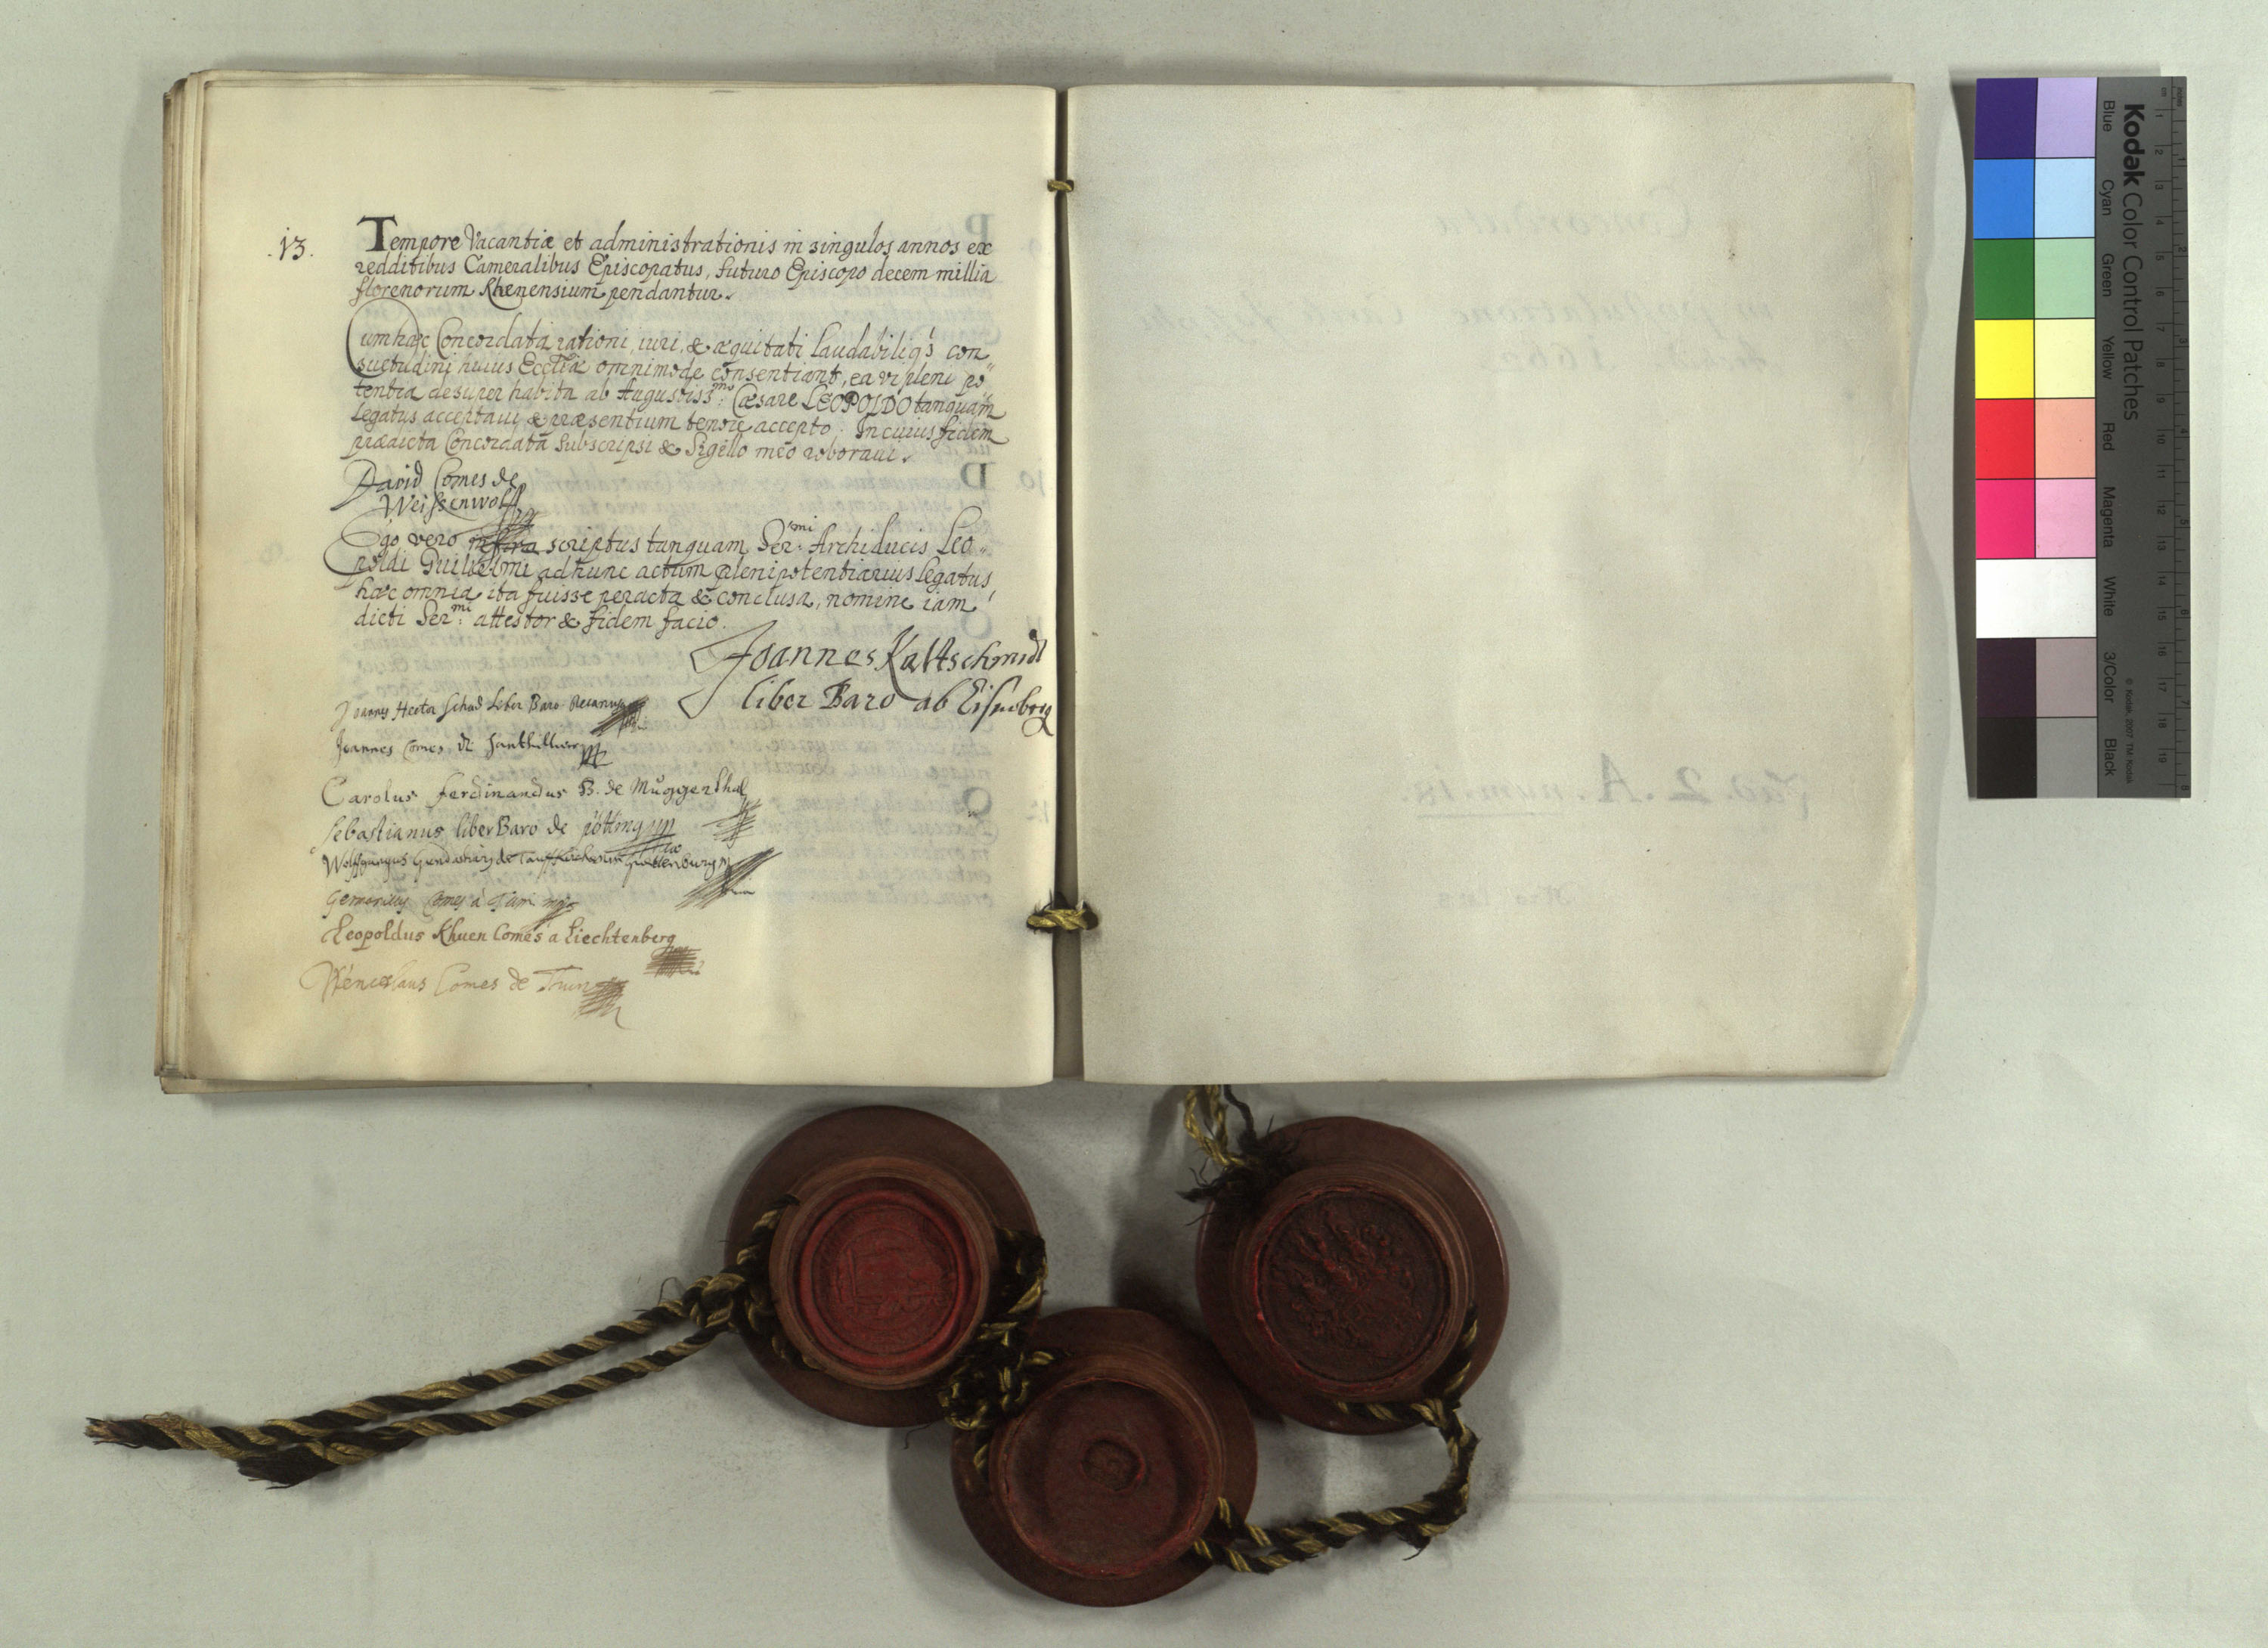 .13.
Tempore Vacantiæ et administrationis in singulos annos ex
redditibus Cameralibus Episcopatus, futuro Episcopo decem millia
florenorum Rhenensium pendantur.
Cum hæc Concordata rationi, iuri, & æquitati laudabiliq's con
suetudini huius Eccliæ omnimode consentiant, ea vi pleni po"
tentia desuper habita ab Augustiss:mo Cæsare LEOPOLDO tanquam
Legatus acceptavi & præsentium tenore accepto. In cuius fidem
prædicta Concordata subscripsi & Sigillo meo roboravi.
David Comes de
Weissenwolff
Ego vero infra scriptus tanquam Ser:mi Archiducis Leo"
poldi Guilielmi ad hunc actum plenipotentiarius Legatus
hæc omnia ita fuisse peracta & conclusa, nomine iam
dicti Ser:mi attestor & fidem facio.
Joannes Kaltschmidt
liber Baro ab Eisneberg
Joannes Hector Schad Leber Baro Decanus
Joannes Comes de
Carolus Ferdinandus B. de Muggenthal
Sebastianus liber Baro de pötting
Wolffgangus de Tauffkirchen in guttenburg
Comes à
Leopoldus Khuen Comes a Liechtenberg
Wenceslaus Comes de Thun
Kodak Color Control Patches
Blue Cyan Green Yellow Red Magenta White 3/Color Black
© Kodak, 2007 TM: Kodak
cm 1 2 3 4 5 6 7 8 9 10 11 12 13 14 15 16 17 18 19